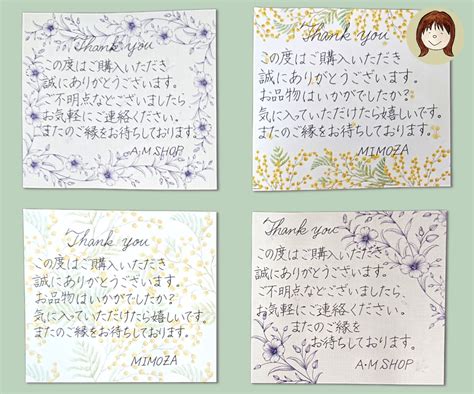 Thank you
この度はご購入いただき
誠にありがとうございます。
ご不明点などございましたら
お気軽にご連絡ください。
またのご縁をお待ちしております。
A.M SHOP
Thank you
この度はご購入いただき
誠にありがとうございます。
お品物はいかがでしたか?
気に入っていただけたら嬉しいです。
またのご縁をお待ちしております。
MIMOZA
Thank you
この度はご購入いただき
誠にありがとうございます。
お品物はいかがでしたか?
気に入っていただけたら嬉しいです。
またのご縁をお待ちしております。
MIMOZA
Thank you
この度はご購入いただき
誠にありがとうございます。
ご不明点などございましたら、
お気軽にご連絡ください。
またのご縁を
お待ちしております。
A・M SHOP